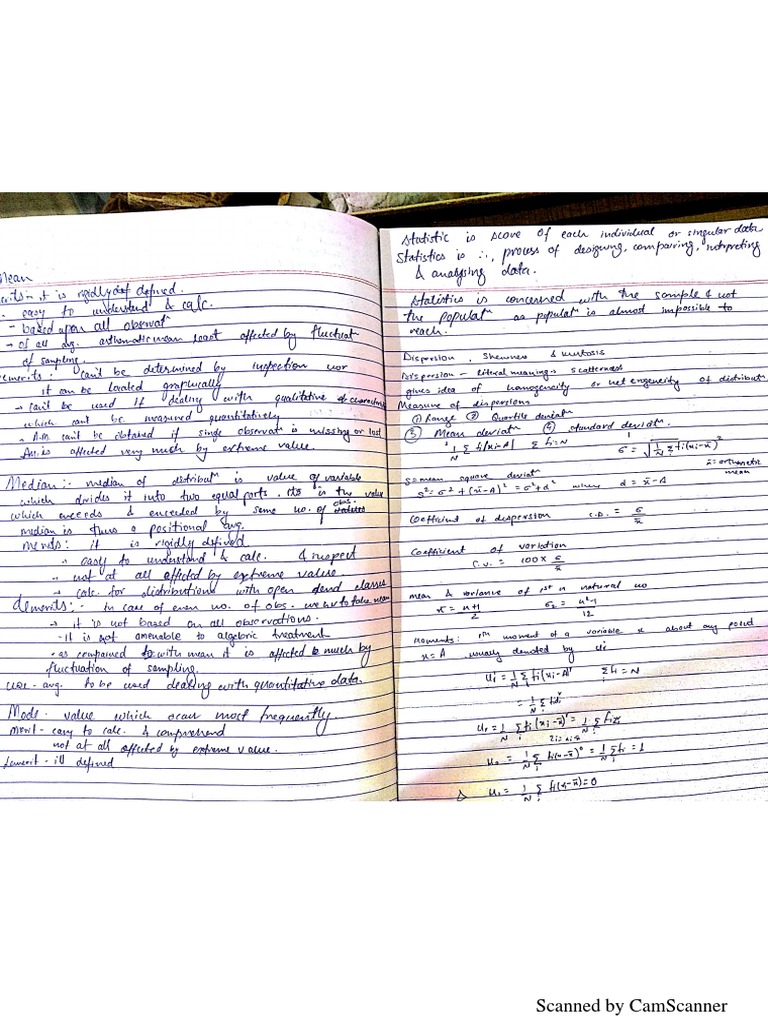 Mean
merits - it is rigidly def defined.
- easy to understand & calc.
- based upon all observatn
- of all avg. arithmatic mean least affected by fluctuatn
of sampling.
demerits : can't be determined by inspection nor
it can be located graphically
→ can't be used if dealing with qualitative characteris
which cant be measured quantitatively
- A.M. can't be obtained if single observatn is missing or lost
A.M. is affected very much by extreme value.
Median :- median of distributn is value of variable
which divides it into two equal parts. its is the value
which exceeds & exceeded by same no. of obs.
median is thus a positional avg.
merits : it is rigidly defined
- easy to understand & calc. & inspect
→ not at all affected by extreme value
→ calc. for distributions with open end classes
demerits :- in case of even no. of obs. we hv to take mean
→ it is not based on all observations.
- it is not amenable to algebric treatment
- as compained to with mean it is affected much by
fluctuation of sampling.
use - avg. to be used dealing with quantitative data.
Mode - value which occur most frequently.
merit - easy to calc. & comprehend
not at all affected by extreme value.
demerit - ill defined
statistic is score of each individual or singular data
Statistics is ∴, process of designing, comparing, interpreting
& analysing data.
statistics is concerned with the sample & not
the populatn as populatn is almost impossible to
reach.
Dispersion, Skewness & kurtosis
Dispersion - literal meaning → scatterness
gives idea of homogeneity or hetrogeneity of distributn
Measure of dispersion
① Range ② Quartile deviatn
③ Mean deviatn ④ standard deviatn
1/N Σ fi|xi-A| Σ fi=N σ = √(1/N Σ fi(xi-x̄)²
x̄ = arithmetic
mean
s = mean square deviatn
s² = σ² + (x̄-A)² = σ²+d² where d = x̄-A
coefficient of dispersion C.D. = σ/x̄
coefficient of variation
C.V. = 100 × σ/x̄
mean & variance of 1st n natural no
x̄ = n+1/2 σ² = n²-1/12
Moments : rth moment of a variable x about any point
x = A usually denoted by
= 1/N Σ fi(xi-A)ʳ Σfi = N
= 1/N Σ fidiʳ
ur = 1/N Σ fi(xi-x̄)ʳ = 1/N Σ fizʳ
u0 = 1/N Σ fi(xi-x̄)⁰ = 1/N Σfi = 1
u1 = 1/N Σ fi(xi-x̄) = 0
Scanned by CamScanner